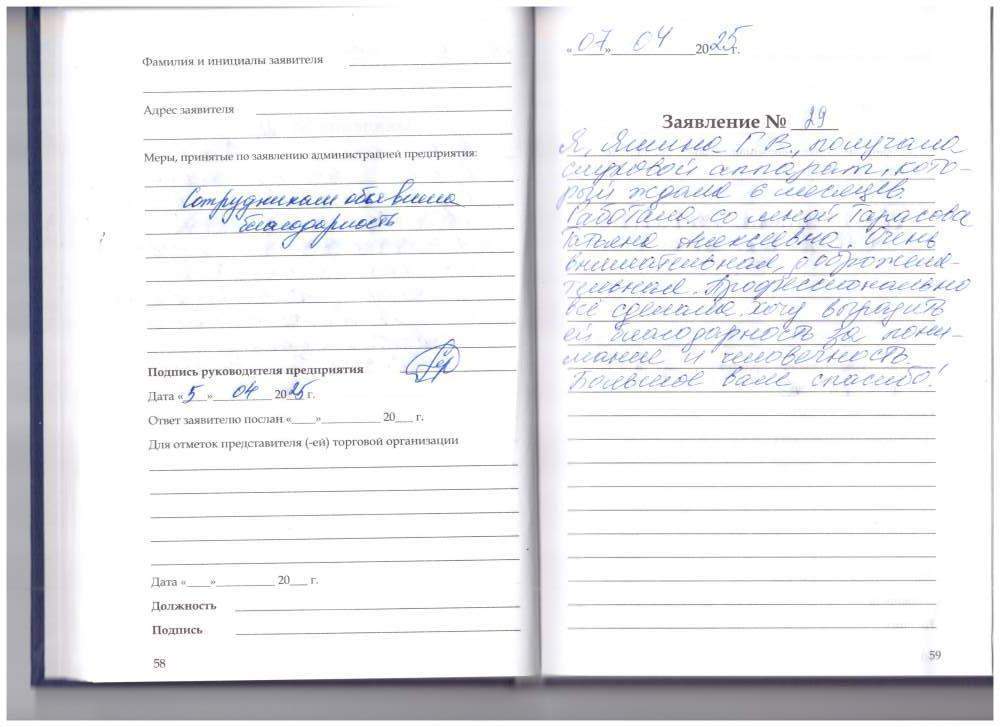 Фамилия и инициалы заявителя
Адрес заявителя
Меры, принятые по заявлению администрацией предприятия:
Сотрудникам объявлена
благодарность
Подпись руководителя предприятия
Дата «5» 04 2025 г.
Ответ заявителю послан «____»__________ 20___ г.
Для отметок представителя (-ей) торговой организации
Дата «____»__________ 20___ г.
Должность
Подпись
58
«07» 04 2025 г.
Заявление № 29
Я, Яшина Г.В., получала
слуховой аппарат, кото-
рый ждала 6 месяцев.
Работала со мной Тарасова
Татьяна Алексеевна. Очень
внимательная, доброжела-
тельная. Профессионально
всё сделала. Хочу выразить
ей благодарность за пони-
мание и человечность.
Большое вам спасибо!
59